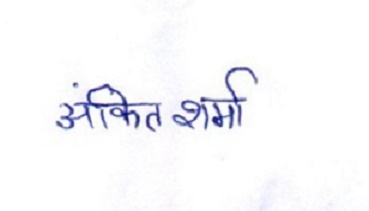 अंकित शर्मा